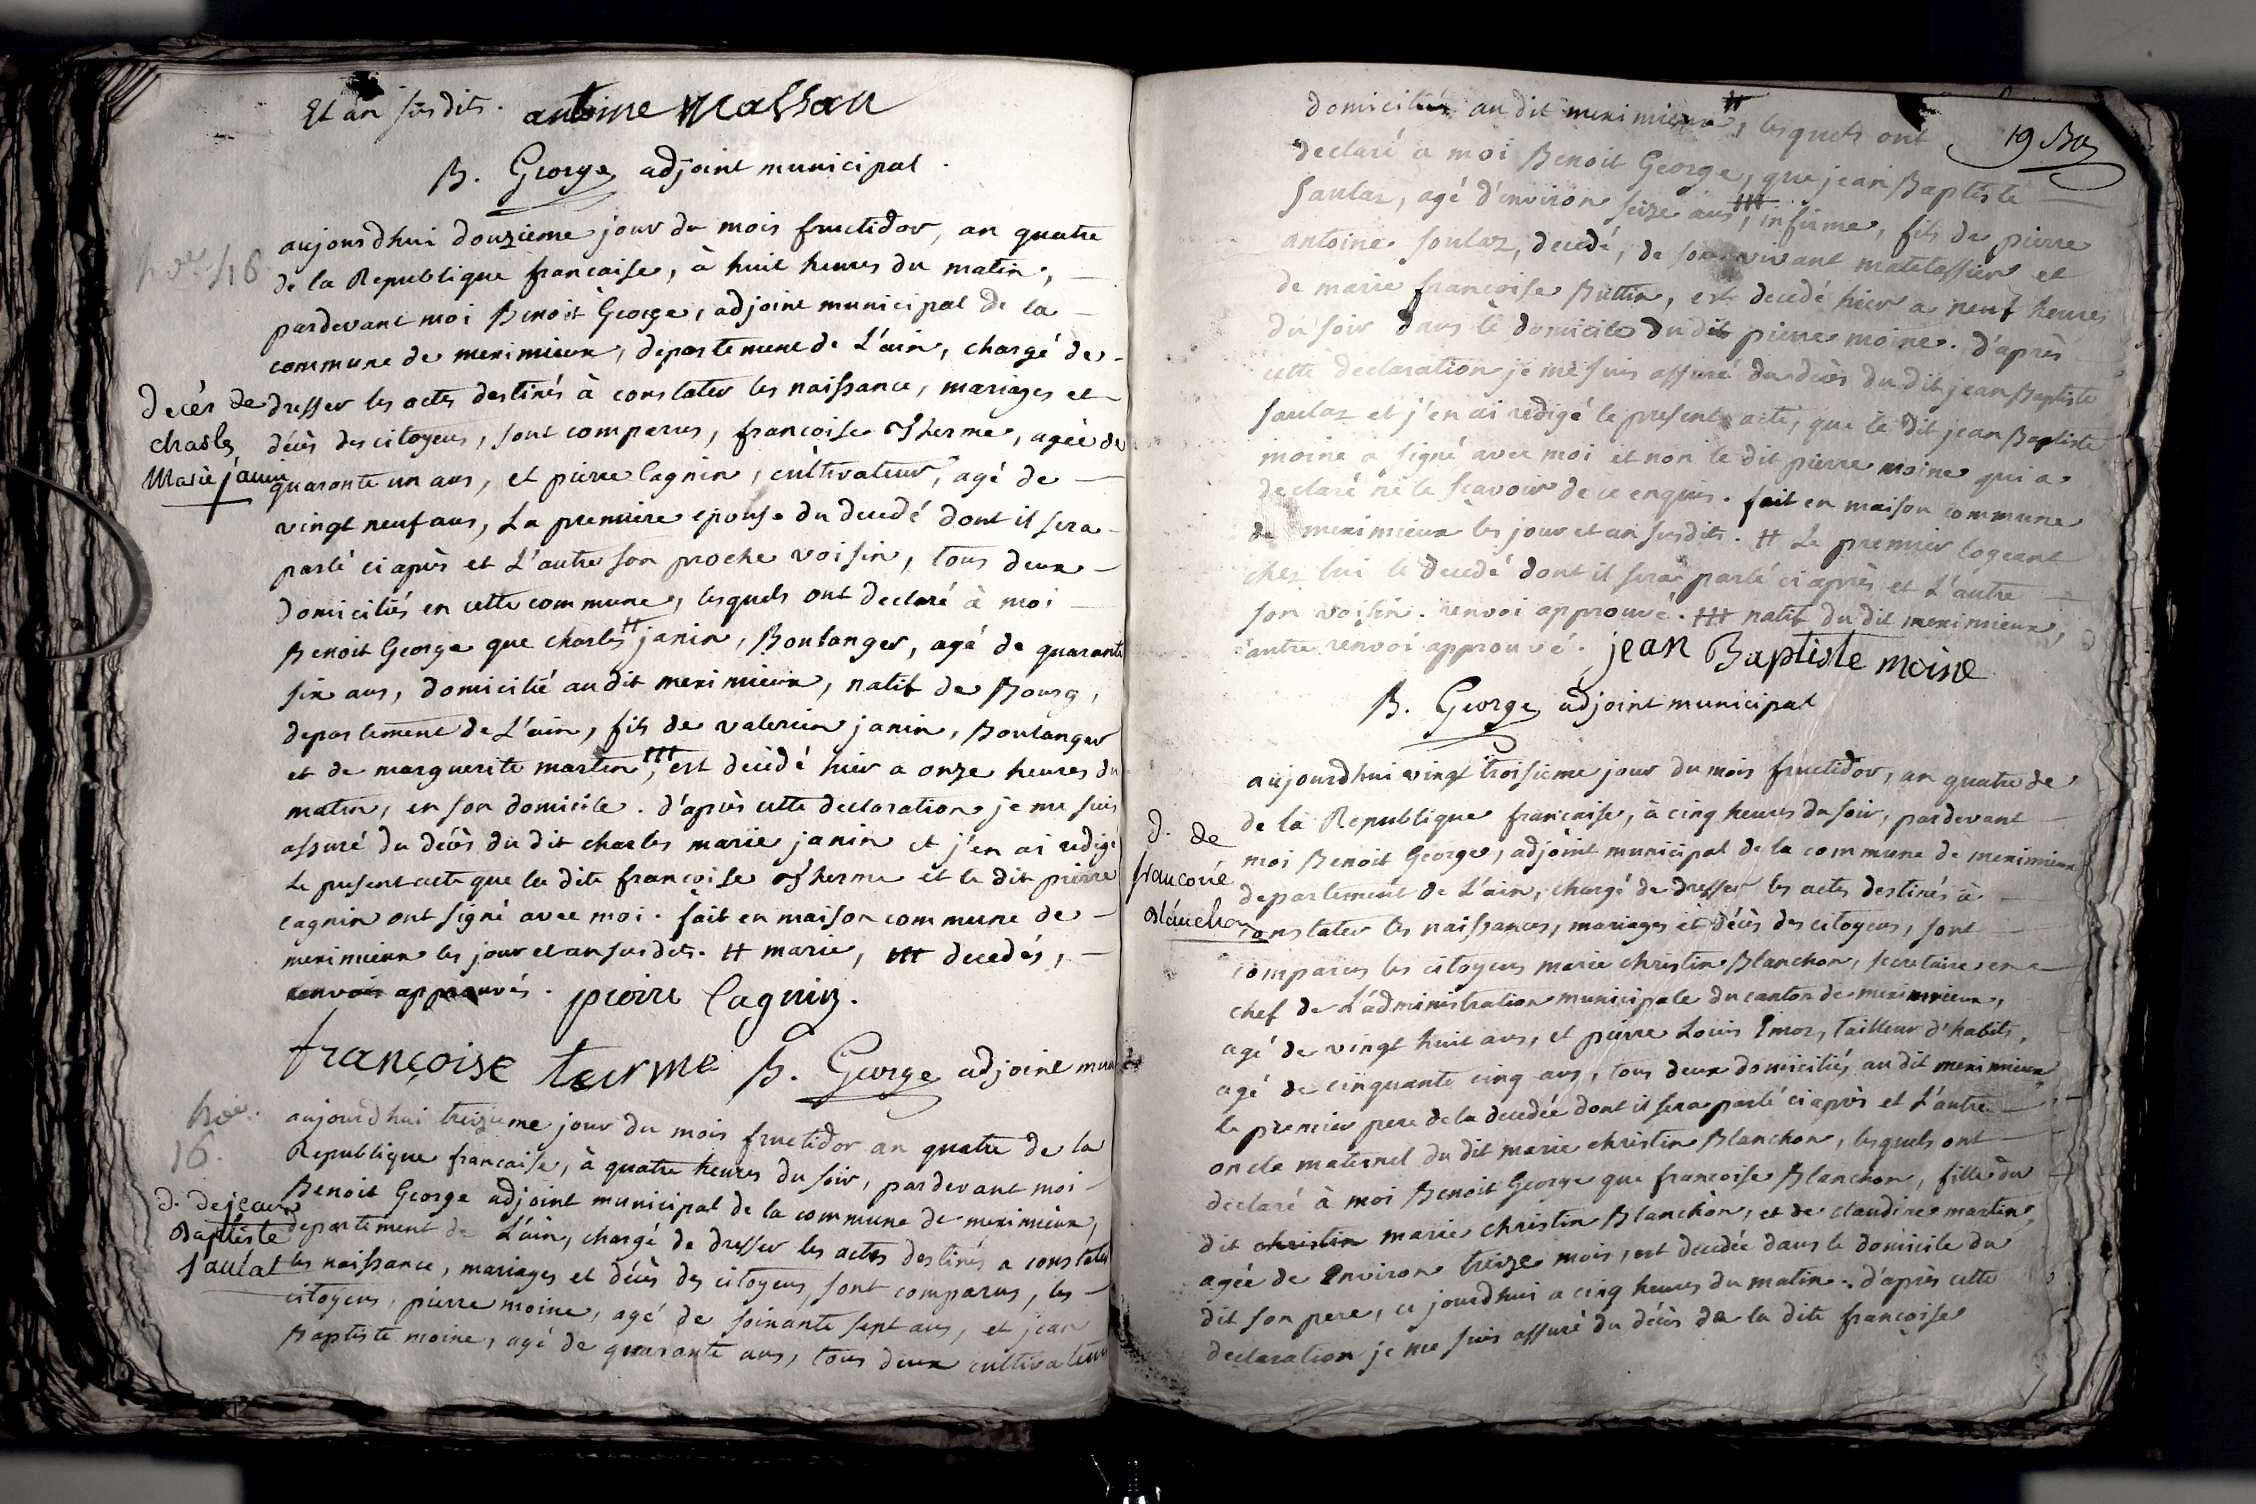 Et an susdits. antoine Massau
B. George adjoint municipal.
aujourdhui douzieme jour du mois fructidor, an quatre
de la Republique francaise, à huit heures du matin,
pardevant moi Benoit George, adjoint municipal de la
commune de meximieux, departement de L'ain, chargé de
dresser les actes destinés à constater les naissance, mariages et
décès des citoyens, sont comparus, francoise therme, agée de
quarante un ans, et pierre Cagnin, cultivateur, agé de
vingt neuf ans, La premiere epouse du decedé dont il sera
parlé ci après et L'autre son proche voisin, tous deux
domiciliés en cette commune, lesquels ont declaré à moi
Benoit George que charles # janin, Boulanger, agé de quarante
six ans, domicilié au dit meximieux, natif de Bourg,
departement de L'ain, fils de valerien janin, Boulanger
et de marguerite martin ###, est decedé hier a onze heures du
matin, en son domicile. d'après cette declaration je me suis
assuré du décès du dit charles marie janin et j'en ai redigé
Le present acte que la dite francoise therme et le dit pierre
cagnin ont signé avec moi. fait en maison commune de
meximieux les jour et an susdits. # marie, ### decedés,
renvois approuvés. pierre Cagnin.
françoise terme B. George adjoint mun
Decés de
charles
Marie janin
16
aujourdhui treizieme jour du mois fructidor an quatre de la
Republique francaise, à quatre heures du soir, pardevant moi
Benoit George adjoint municipal de la commune de meximieux,
departement de L'ain, chargé de dresser les actes destinés a constater
les naissance, mariages et décès des citoyens, sont comparus, les
citoyens, pierre moine, agé de soixante sept ans, et jean
Baptiste moine, agé de quarante ans, tous deux cultivateurs
16.
d. de jean
Baptiste
Saulat
19
domiciliés au dit meximieux #, lesquels ont
declaré a moi Benoit George, que jean Baptiste
Saulaz, agé d'environ seize ans ###, infirme, fils de pierre
antoine soulaz, decedé, de son vivant matelassier et
de marie francoise Buttin, est decedé hier a neuf heures
du soir dans le domicile du dit pierre moine. d'après
cette declaration je me suis assuré du décès du dit jean Baptiste
Saulaz et j'en ai redigé le present acte, que le dit jean Baptiste
moine a signé avec moi et non le dit pierre moine qui a
declaré ne le scavoir de ce enquis. fait en maison commune
de meximieux les jour et an susdits. # Le premier logeant
chez lui le decedé dont il sera parlé ci après et L'autre
son voisin. renvoi approuvé. ### natif du dit meximieux,
autre renvoi approuvé. jean Baptiste moine
B. George adjoint municipal
aujourdhui vingt troisieme jour du mois fructidor, an quatre de
de la Republique francaise, à cinq heures du soir, pardevant
moi Benoit George, adjoint municipal de la commune de meximieux
departement de L'ain, chargé de dresser les actes destinés à
constater les naissances, mariages et décès des citoyens, sont
comparus les citoyens marie christin Blanchon, secretaire en
chef de L'administration municipale du canton de meximieux,
agé de vingt huit ans, et pierre Louis Imoz, tailleur d'habits,
agé de cinquante cinq ans, tous deux domiciliés au dit meximieux
le premier pere de la decedée dont il sera parlé ci après et L'autre
oncle maternel du dit marie christin Blanchon, lesquels ont
declaré à moi Benoit George que francoise Blanchon, fille du
dit christin marie christin Blanchon, et de claudine martin,
agée de Environ treize mois, est decedée dans le domicile du
dit son pere, ce jourdhui a cinq heures du matin. d'après cette
declaration je me suis assuré du décès de la dite francoise
d. de
francoise
Blanchon